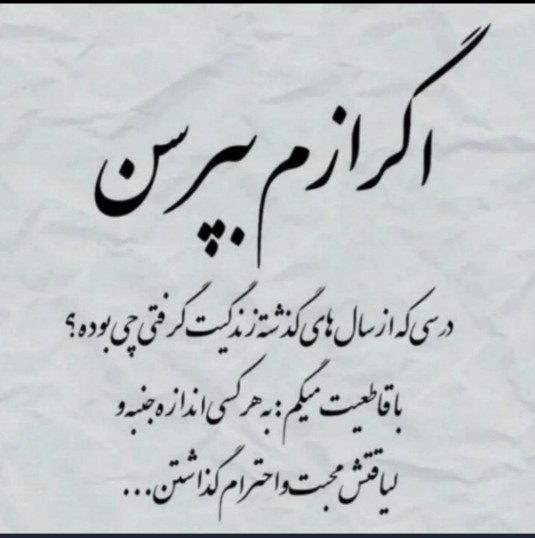 اگر ازم بپرسن
درسی که از سال های گذشته زندگیت گرفتی چی بوده؟
با قاطعیت میگم: به هر کسی اندازه جنبه و
لیاقتش محبت و احترام گذاشتن...